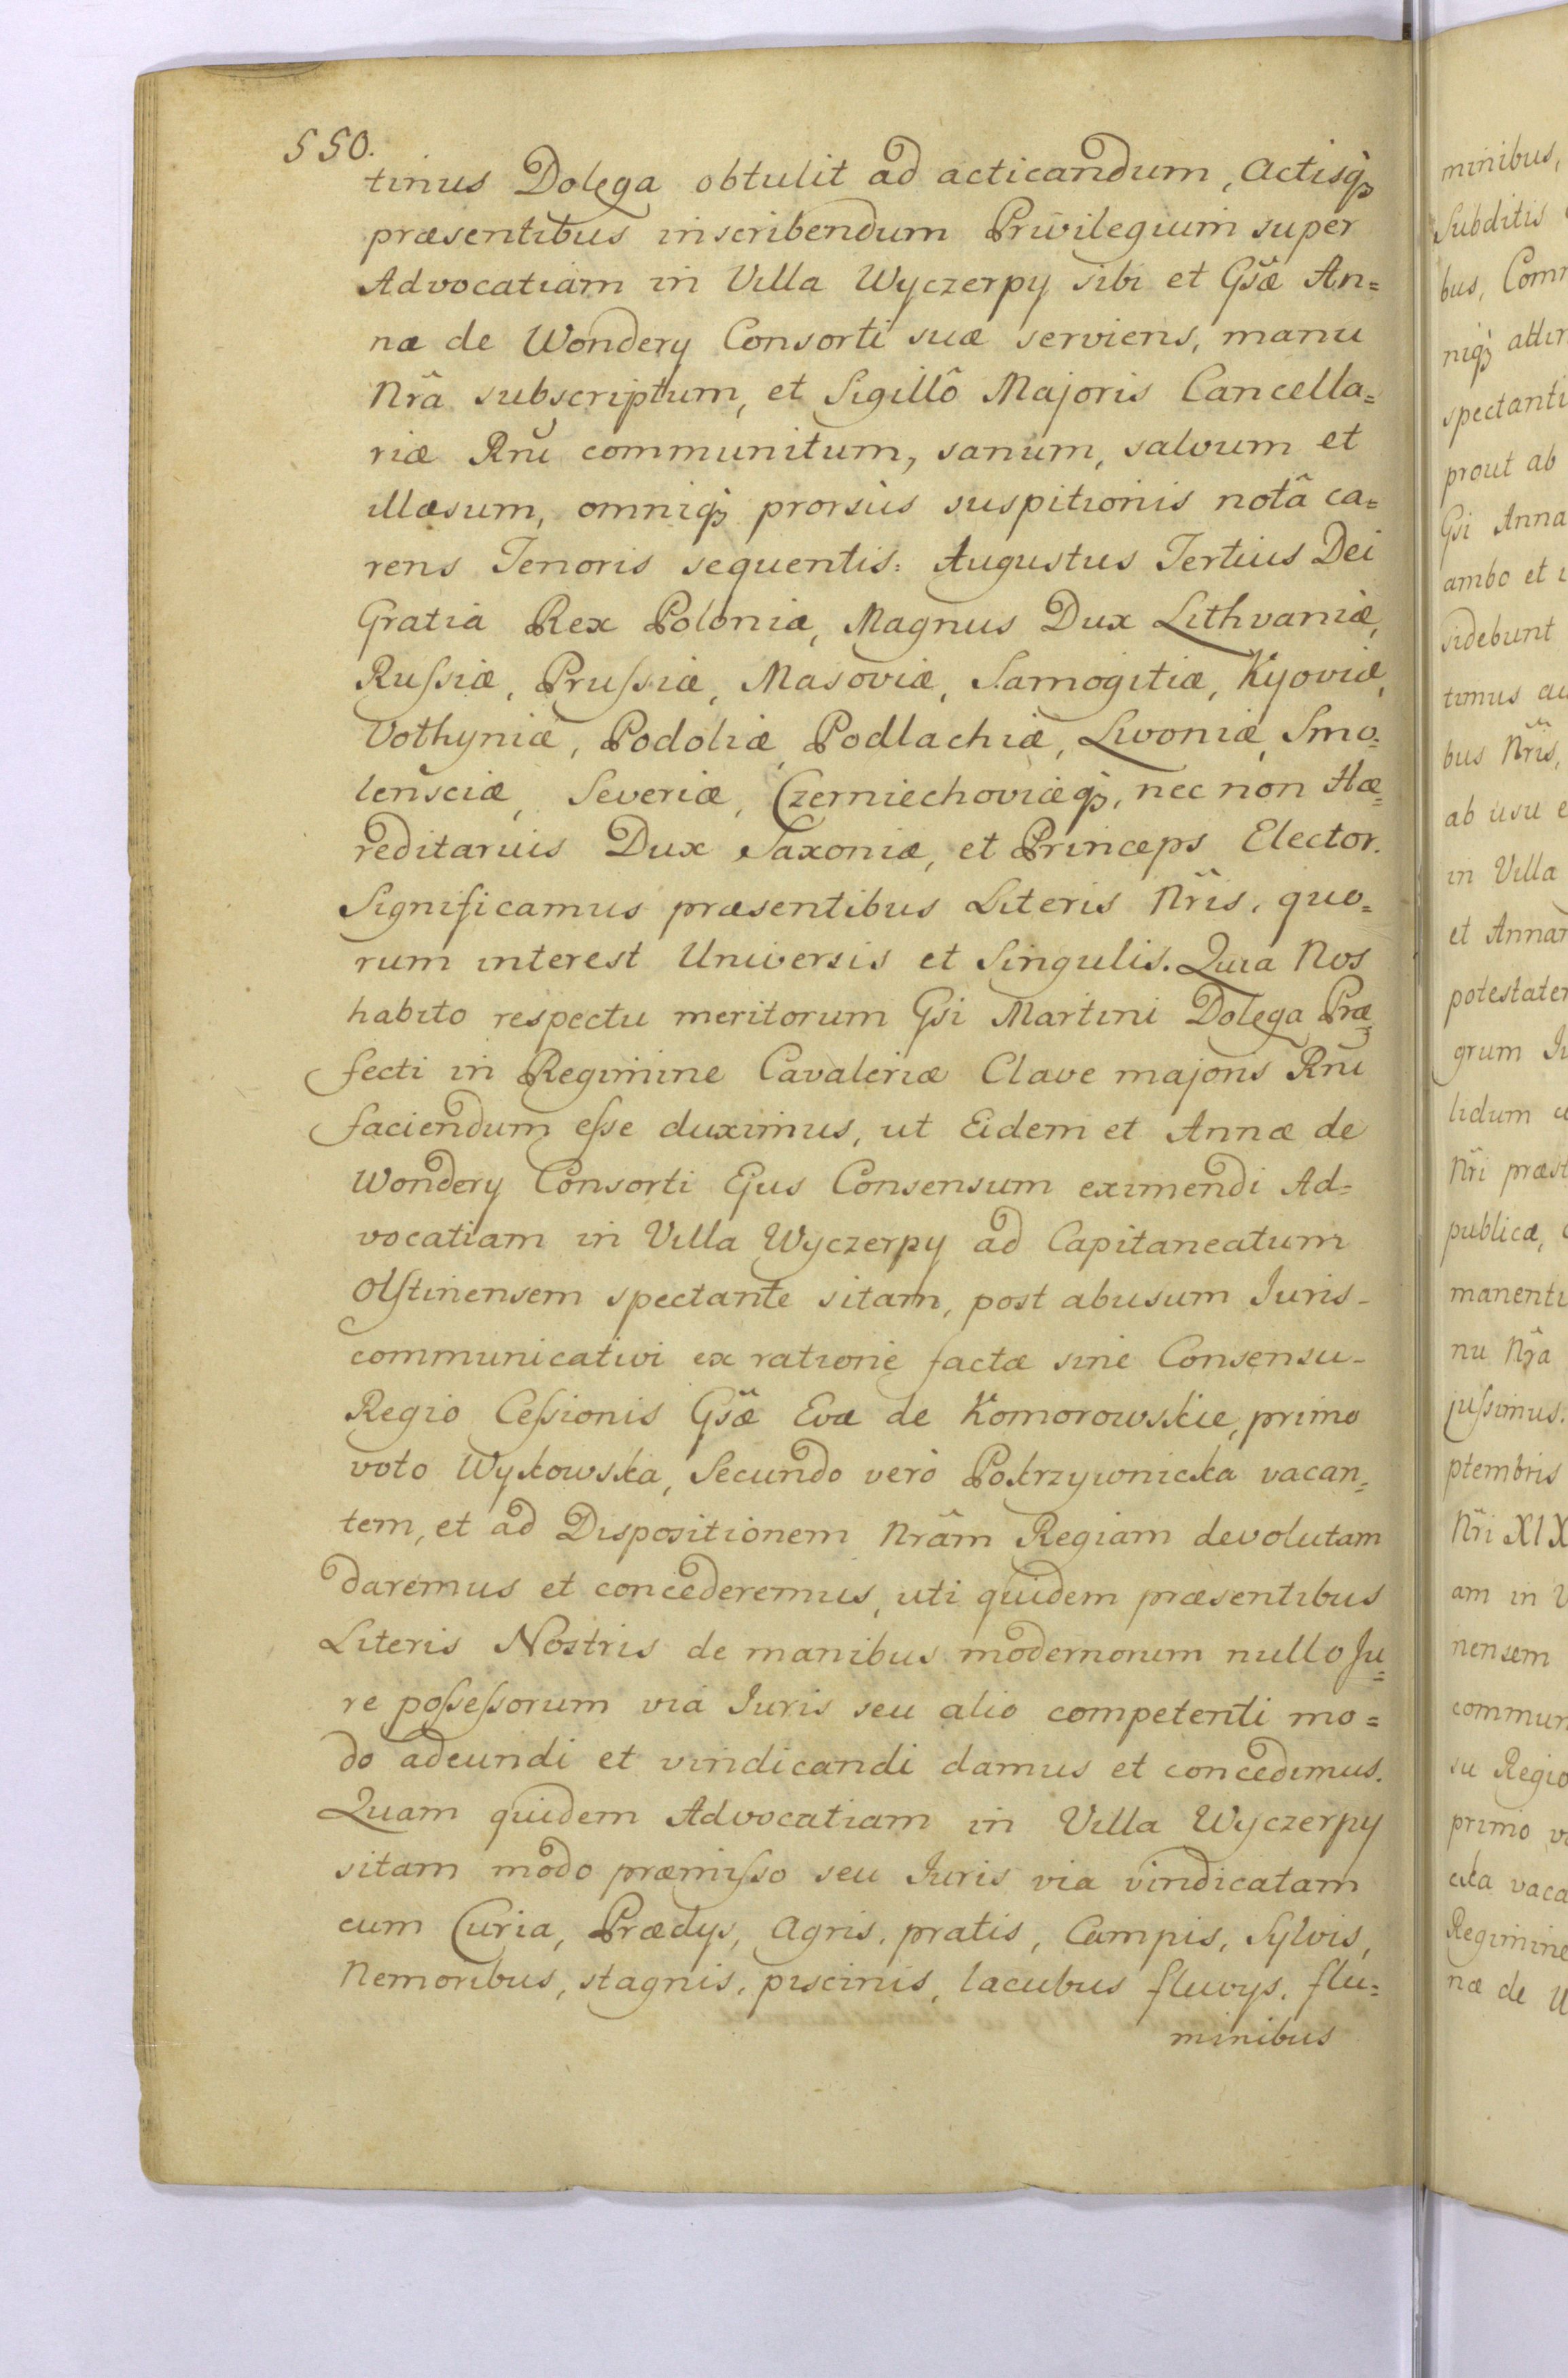 550.
tinus Dolęga obtulit ad acticandum, actisq́;
præsentibus inscribendum Privilegium super
Advocatiam in Villa Wyczerpy sibi et Gsæ An=
næ de Wondery Consorti suæ serviens, manu
Nrâ subscriptum, et Sigillô Majoris Cancella=
riæ Rnĩ communitum, sanum, salvum et
illæsum, omniq́; prorsùs suspitionis notâ ca=
rens Tenoris sequentis: Augustus Tertius Dei
Gratiá Rex Poloniæ, Magnus Dux Lithvaniæ,
Rußiæ, Prußiæ, Masoviæ, Samogitiæ, Kyoviæ,
Volhyniæ, Podoliæ, Podlachiæ, Livoniæ, Smo=
lensciæ, Severiæ, Czerniechoviæq́;, nec non Hæ=
reditarius Dux Saxoniæ, et Princeps Elector.
Significamus præsentibus Literis Nris, quo=
rum interest Universis et Singulis. Quia Nos
habito respectu meritorum Gsi Martini Dolęga Præ=
fecti in Regimine Cavaleriæ Clavæ majoris Rnĩ
faciendum eße duximus, ut Eidem et Annæ de
Wondery Consorti Ejus Consensum eximendi Ad=
vocatiam in Villa Wyczerpy ad Capitaneatum
Olstinensem spectante sitam, post abusum Juris-
communicativi ex ratione factæ sine Consensu-
Regio Ceßionis Gsæ Evæ de Komorowskie, primo
voto Wykowska, Secundo verò Pokrzywnicka vacan=
tem, et ad Dispositionem Nrâm Regiam devolutam
daremus et concederemus, uti quidem præsentibus
Literis Nostris de manibus modernorum nullo Ju=
re poßeßorum viâ Juris seu alio competenti mo=
do adeundi et vindicandi damus et concedimus.
Quam quidem Advocatiam in Villa Wyczerpy
sitam modo præmißo seu Juris via vindicatam
cum Curia, Prædys, Agris, pratis, Campis, Sylvis,
Nemoribus, stagnis, piscinis, lacubus fluvys, flu=
minibus
minibus,
Subditis
bus, Comm
niq́; attin
spectanti
prout ab
Gsi Anna
ambo et
sidebunt
timus au
bus Nris,
ab usu e
in Villa
et Annam
potestatem
grum Ju
lidum
Nri præst
publicæ,
manenti
nu Nrâ
jußimus.
ptembris
Nri XIX
am in V
nensem
commun
su Regio
primo vo
cka vaca
Regimine
næ de W